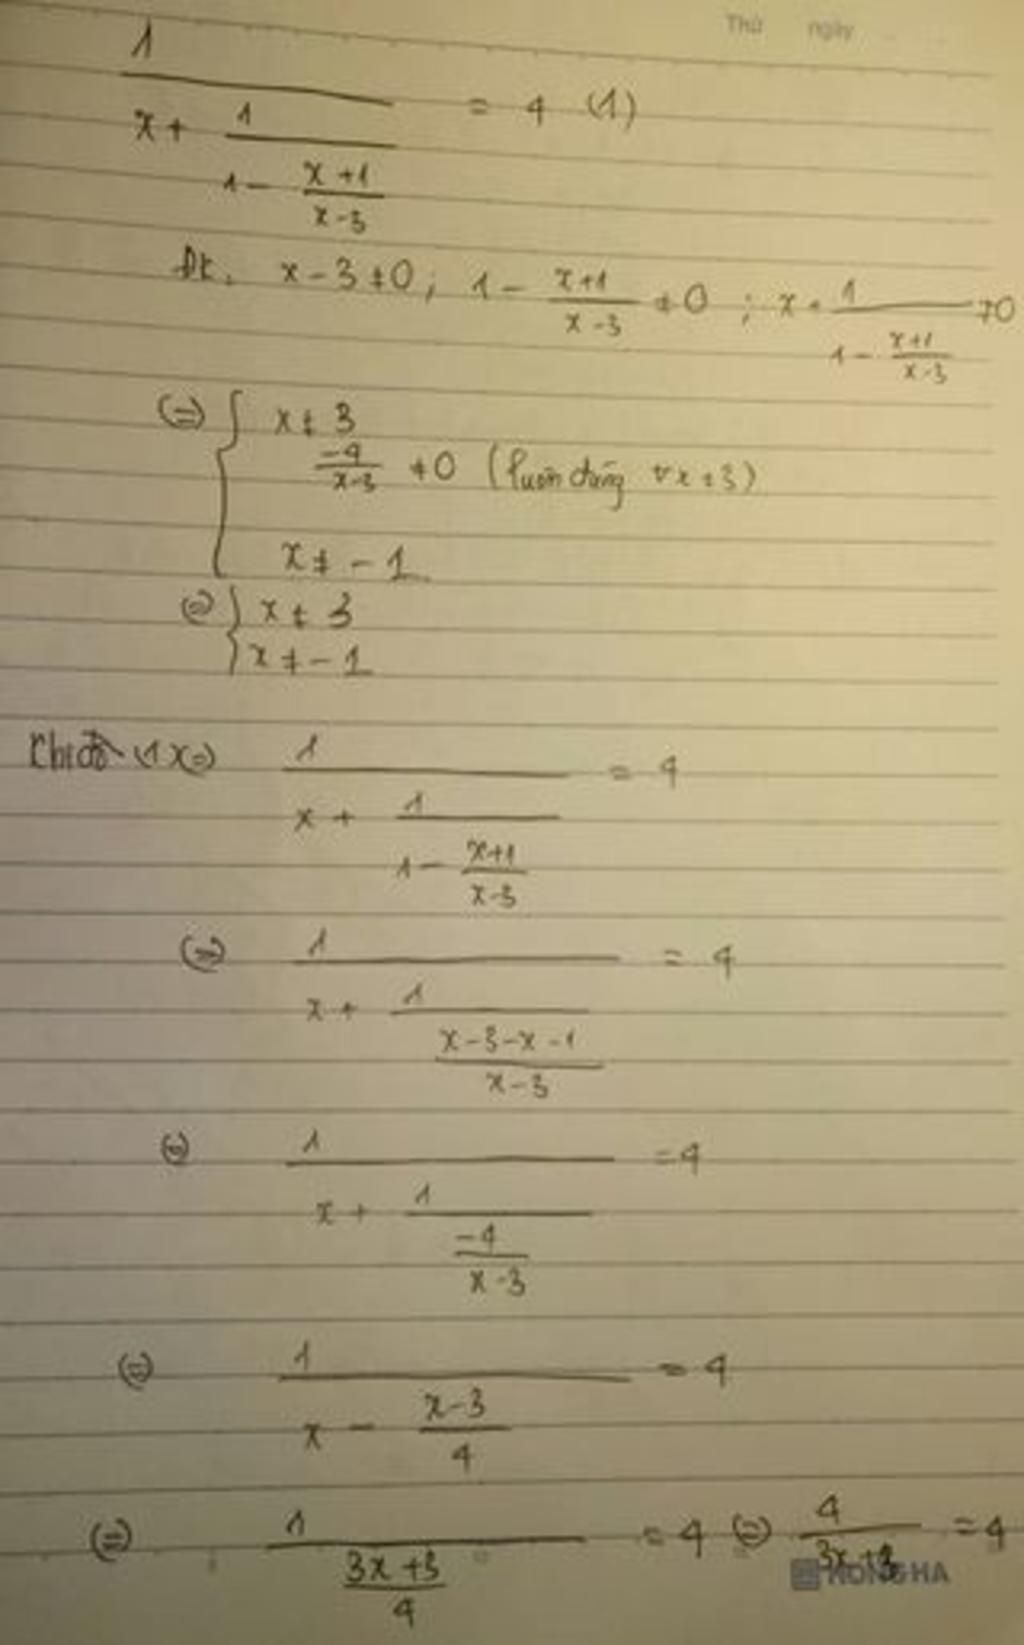 Thứ ngày
1/(x + 1/(1 - (x+1)/(x-3))) = 4 (1)
ĐK: x - 3 ≠ 0; 1 - (x+1)/(x-3) ≠ 0; x + 1/(1 - (x+1)/(x-3)) ≠ 0
(=) { x ≠ 3
-4/(x-3) ≠ 0 (luôn đúng ∀x ≠ 3)
x ≠ -1
(=) { x ≠ 3
x ≠ -1
Khi đó (1) (=) 1/(x + 1/(1 - (x+1)/(x-3))) = 4
(=) 1/(x + 1/((x-3-x-1)/(x-3))) = 4
(=) 1/(x + 1/(-4/(x-3))) = 4
(=) 1/(x - (x-3)/4) = 4
(=) 1/((3x+3)/4) = 4 (=) 4/(3x+3) = 4
HONG HA